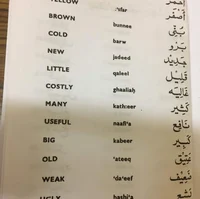 YELLOW 'sfar أَصْفَر
BROWN bunnee بُنِّي
COLD barw بَرْو
NEW jadeed جَدِيْد
LITTLE qaleel قَلِيْل
COSTLY ghaaliah غَالِيَه
MANY katheer كَثِيْر
USEFUL naafi'a نَافِع
BIG kabeer كَبِيْر
OLD 'ateeq عَتِيْق
WEAK 'da'eef ضَعِيْف
UGLY bashi'a